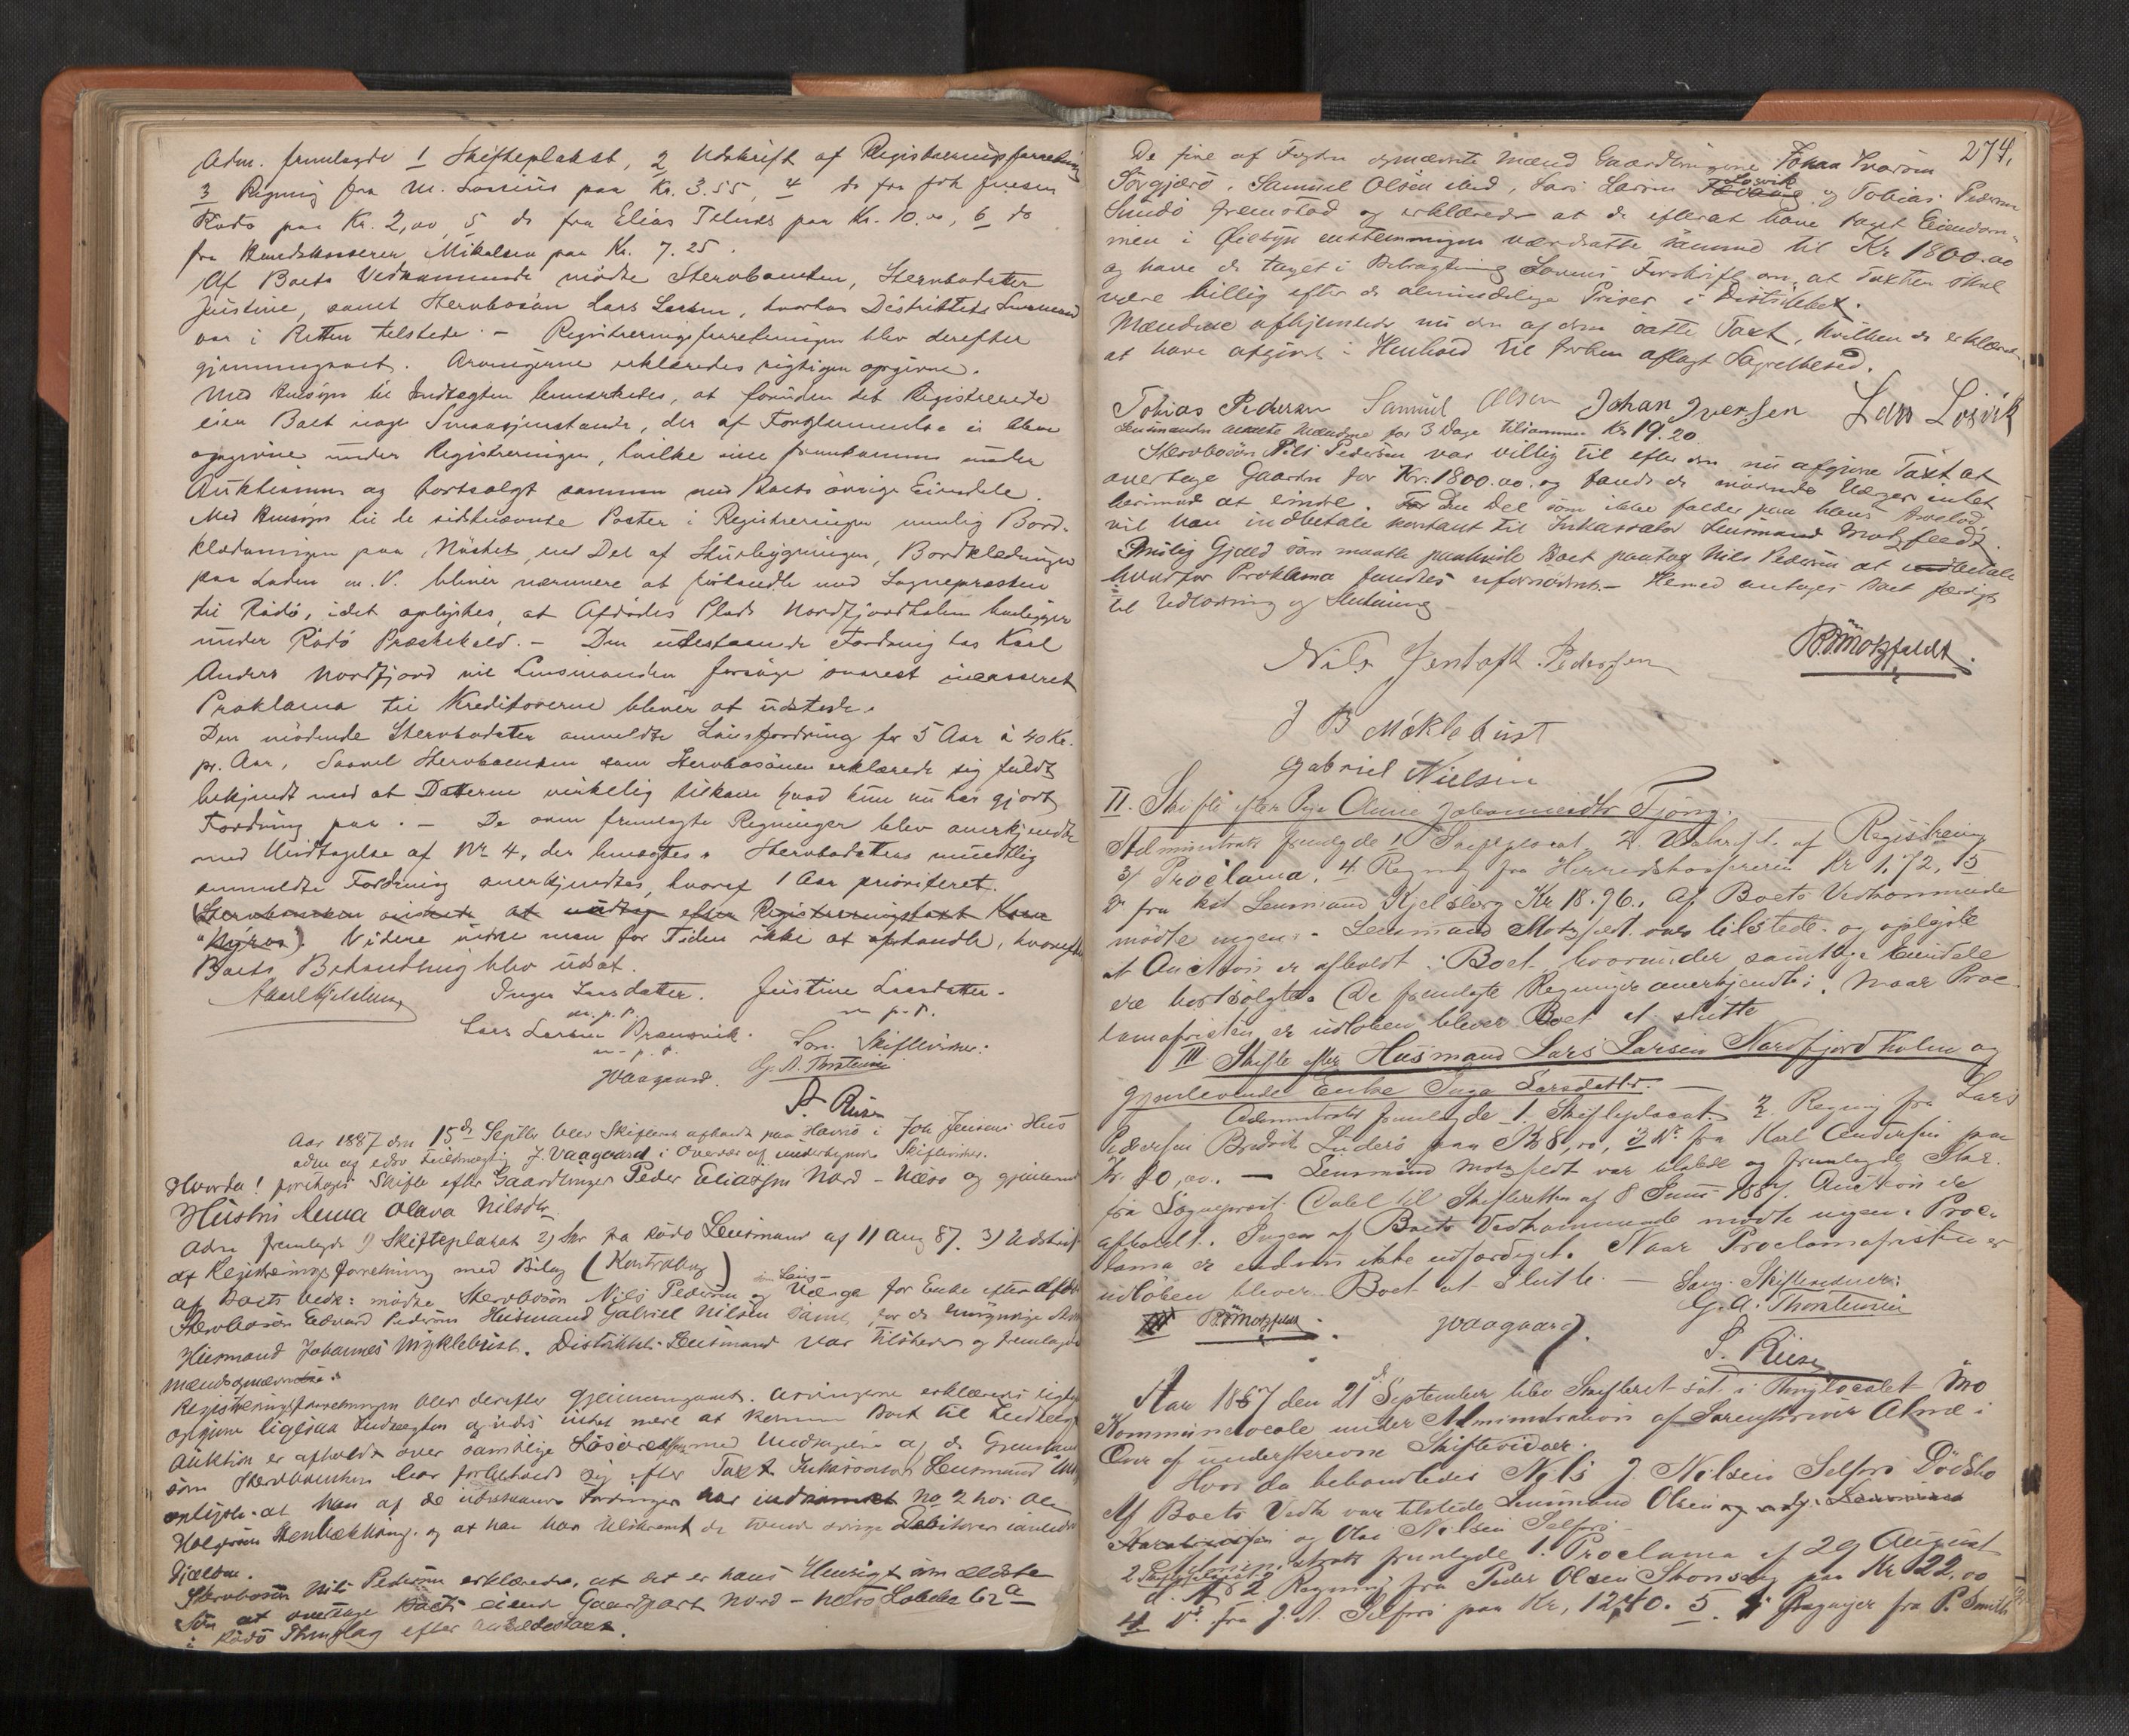 Adm. fremlagde 1 Skifteplakat, 2 Udskrift af Registreringsforretning
3 Regning fra M. Lossius paa Kr. 3.55, 4 do fra Joh Jensen
Rødø paa Kr. 2,00, 5 do fra Elias Telnes paa Kr. 10.00, 6 do
fra Herredskasserer Mikalsen paa Kr. 7.25.
Af Boets Vedkommende mødte Stervboenken, Stervbodatter
Justine, samt Stervbosøn Lars Larsen, hvorhos Distriktets Lensmand
var i Retten tilstede. – Registreringsforretningen blev derefter
gjennemgaaet. Arvingerne erklæredes rigtigen opgivne.
Med Hensyn til Indtægten bemærkedes, at foruden det Registrerede
eier Boet nogle Smaagjenstande, der af Forglemmelse ei blev
opgivne under Registreringen, hvilke ville fremkomme under
Auktionen og bortsolgt sammen med Boets øvrige Eiendele.
Med Hensyn til de sidstnævnte Poster i Registreringen nemlig Bord-
klædningen paa Nøstet, en Del af Stuebygningen, Bordklædningen
paa Laden m. V. bliver nærmere at forhandle med Sognepræsten
til Rødø, idet oplystes, at Afdødes Plads Nordfjordholm henligger
under Rødø Præstebold. – Den udestaaende Fordring hos Karl
Anders Nordfjord vil Lensmanden forsøge snarest incasseret
Proklama til Kreditorerne bliver at udstede.
Den mødende Stervbodatter anmeldte Lønsfordring for 5 Aar à 40 Kr.
pr. Aar, Saavel Stervboenken som Stervbosønnen erklærede sig fuldt
bekjendt med at Datteren virkelig tilkom hvad hun nu har gjort
Fordring paa. – De oven fremlagte Regninger blev anerkjendte
med Undtagelse af Nr 4, der benegtes. Stervbodatters mundtlig
anmeldte Fordring anerkjendtes, hvoraf 1 Aar prioriteret.
(Stervboenken ønskede at udtage efter Registreringstaxt Koen
"Nyros"). Videre vidste man for Tiden ikke at afhandle, hvorefter
Boets Behandling blev udsat.
Inger Larsdatter. Justine Larsdatter.
m. p. P. m p. P.
Lars Larsen Bransvik. Som Skiftevidner:
m. p. P. G. A. Thorsteinsen
Waagaard.
S. Riise
Aar 1887 den 15de Septbr blev Skifteret afholdt paa Havnø i Joh Jensens Hus
adm af edsv Fuldmægtig J. Vaagaard i Overvær af underskrevne Skiftevidner.
Hvorda! foretoges Skifte efter Gaardbruger Peder Eliassen Nord-Næsø og gjenlevende
Hustru Anna Olava Nilsdtr
Adm fremlagde 1) Skifteplakat 2) Skr fra Rødø Lensmand af 11 Aug 87. 3) Udskrift
af Registreringsforretning med Bilag (Kontrabog)
af Boets Vedk: mødte Stervbosøn Nils Pedersen og Værge for Enke efter afdøde
Stervbosøn Edvard Pedersen Husmand Gabriel Nilsen samt, for de umyndige
Husmand Johannes Myklebust. Distriktets Lensmand var tilstede og fremlagde
Mændsopnævnelse.
Registreringsforretningen blev derefter gjennemgaaet. Arvingerne erklæredes rigtig
opgivne ligesaa Indtægten og vides intet mere at komme Boet til Indtægt
Auktion er afholdt over samtlige Løsøre med Undtagelse af de Gjenstande
som Stervboenken har forbeholdt sig efter Taxt Inkassator Lensmand
oplyste at han af de udestaaende Fordringer har indkommet No 2 hos
Holgersen Stenbækhaug og at han har tilskrevet de tvende øvrige Debitorer
Gjælden.
Stervbosøn Nils Pedersen erklærede, at det er hans Hensigt som ældste
Søn at overtage Boets eiende Gaardpart Nord-Næsø Løbeno 62a
i Rødø Thinglag efter
274.
De fire af Fogden opnævnte Mænd Gaardbrugerne Johan Iversen
Sørgjærø, Samuel Olsen ibid, Lars Larsen Losvik og Tobias Pedersen
Sundø fremstod og erklærede at de efterat have taget Eiendom-
men i Øiesyn enstemmigen værdsatte samme til Kr 1800.00
og have de taget i Betragtning Lovens Forskrift om, at Taxten skal
være billig efter de almindelige Priser i Distriktet.
Mændene afhjemlede nu den af dem satte Taxt, hvilken de erklærede
at have afgivet i Henhold til forhen aflagt Lagrettesed.
Tobias Pedersen Samuel Olsen Johan Iversen Lars Losvik
Lensmanden Mændene for 3 Dage tilsammen Kr 19.20
Stervbosøn Nils Pedersen var villig til efter den nu afgivne Taxt at
overtage Gaarden for Kr. 1800.00. og fandt de mødende Værger intet
herimod at erindre. Den Del som ikke falder paa hans Arvelod,
vil han indbetale kontant til Inkassator Lensmand Motzfeldt.
Mulig Gjæld som maatte paahvile Boet paatog Nils Pedersen at indbetale
hvorfor Proklama fandtes ufornødent. – Hermed antages Boet færdigt
til Udlodning og Slutning
Nils Jentoft Pedersen
Motzfeldt.
J B Möklebust
Gabriel Nielsen
II. Skifte efter Pige Oline Johannesdtr Tjong.
Administrator fremlagde 1 Skifteplacat. 2. Udskrift af Registrering
3) Proclama. 4. Regning fra Herredskassereren Kr 1,72, 5
Do fra kst Lensmand Kjelsberg Kr 18.96. Af Boets Vedkommende
mødte ingen. – Lensmand Motzfeldt var tilstede og oplyste
at Auction er afholdt i Boet, hvorunder samtlige Eiendele
ere bortsolgte. De fremlagte Regninger anerkjendtes. Naar Proc-
lamafristen er udløben bliver Boet at slutte
III Skifte efter Husmand Lars Larsen Nordfjordholm og
gjenlevende Enke Inga Larsdatter. –
Administrator fremlagde 1. Skifteplacat 2. Regning fra Lars
Pedersen Bredvik Lúderö paa Kr 8,00, 3 Do fra Karl Andersen paa
Kr. 10,00. – Lensmand Motzfeldt var tilstede og fremlagde Skr.
fra Sogneprest Dahl til Skifteretten af 8 Juni 1887. Auction er
afholdt. Ingen af Boets Vedkommende mødte ingen. Proc-
lama er endnu ikke udfærdiget. Naar Proclamafristen er
udløben bliver Boet at slutte. – Som Skiftevidner:
G. A. Thorsteinsen
Motzfeldt. Waagaard.
S. Riise
Aar 1887 den 21de September blev Skifteret sat i Thinglocalet Mo
Kommunelocale under Administration af Sorenskriver Alme i
Over af underskrevne Skiftevidner.
Hvor da behandledes Nils J. Nilsens Selfors Dødsbo
Af Boets Vedk var tilstede Lensmand Olsen
og Olai Nilsen Selfors –
Administrator fremlagde 1. Proclama af 29 August
2 Regning fra Peder Olsen Stenseng paa Kr 22,00
4 Do fra J. A. Selfors paa Kr, 12,40. 5. fra P. Smith